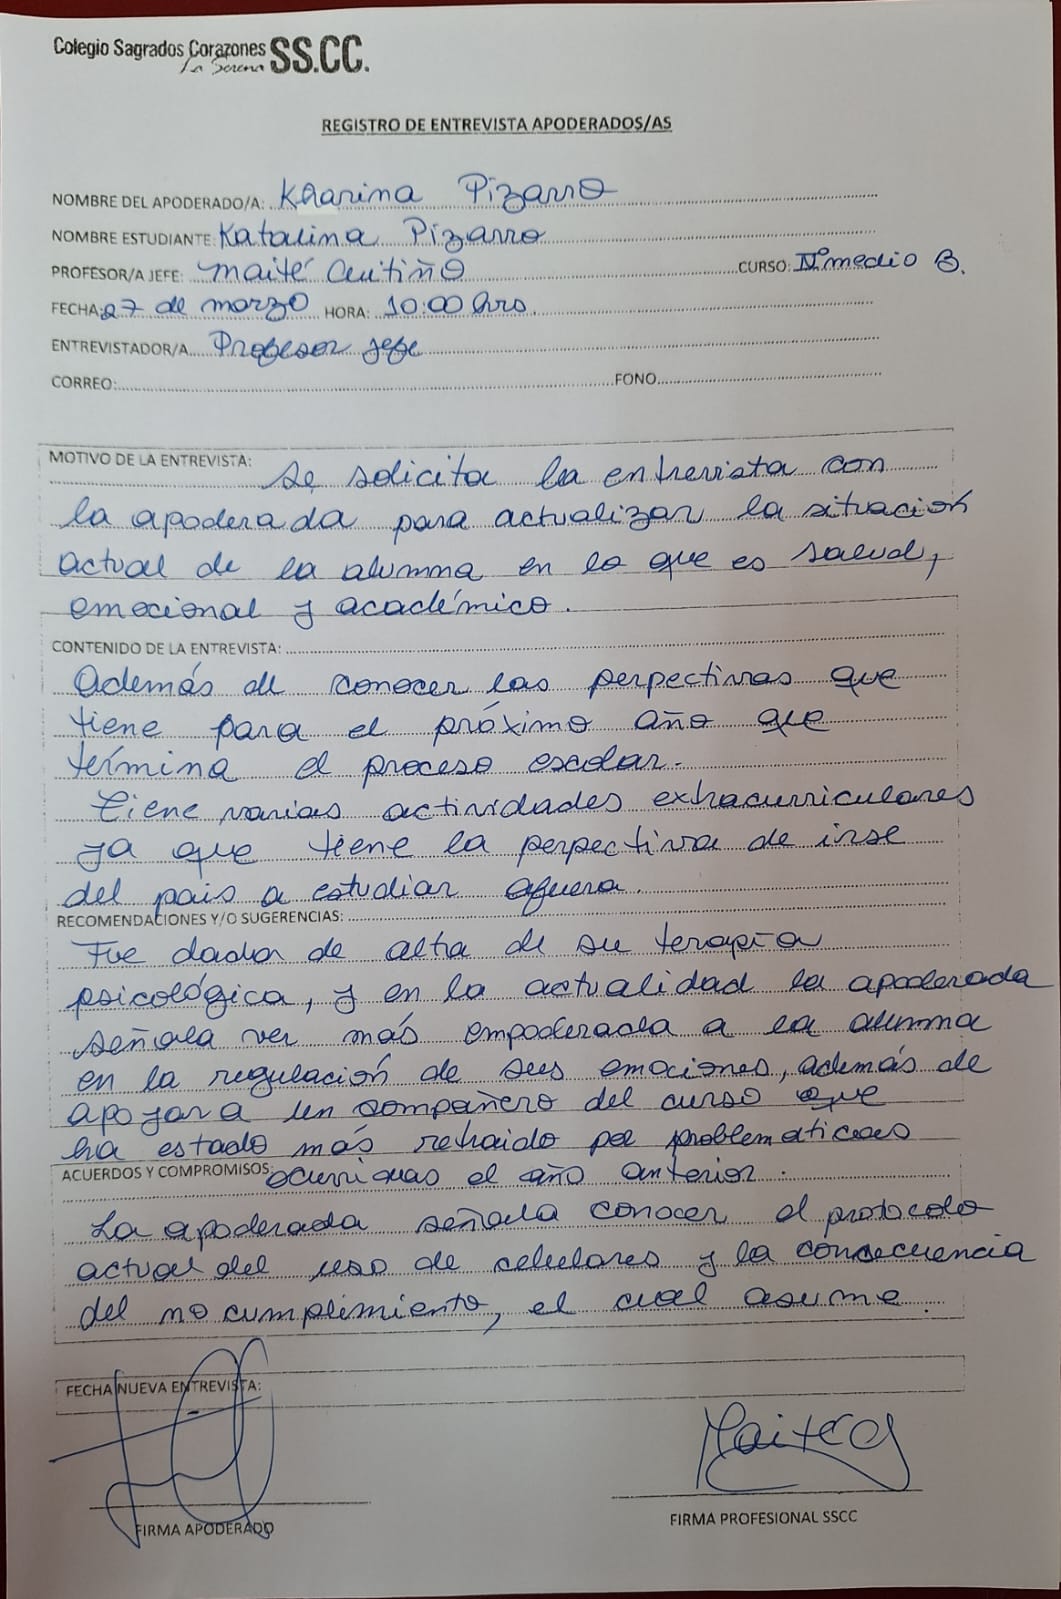 Colegio Sagrados Corazones SS.CC.
La Serena
REGISTRO DE ENTREVISTA APODERADOS/AS
NOMBRE DEL APODERADO/A: Kharina Pizarro
NOMBRE ESTUDIANTE: Katalina Pizarro
PROFESOR/A JEFE: Maité Centiño CURSO: IVº medio B.
FECHA: 27 de marzo HORA: 10:00 hrs.
ENTREVISTADOR/A Profesor jefe
CORREO: FONO
MOTIVO DE LA ENTREVISTA: Se solicita la entrevista con
la apoderada para actualizar la situación
actual de la alumna en lo que es salud,
emocional y académico.
CONTENIDO DE LA ENTREVISTA:
Además de conocer las perpectivas que
tiene para el próximo año que
términa el proceso escolar.
Tiene varias actividades extracurriculares
ya que tiene la perpectiva de irse
del país a estudiar afuera.
RECOMENDACIONES Y/O SUGERENCIAS:
Fue dada de alta de su terapia
psicológica, y en la actualidad la apoderada
señala ver más empoderada a la alumna
en la regulación de sus emociones, además de
apoyar a un compañero del curso que
ha estado más retraido por problematicas
ACUERDOS Y COMPROMISOS: ocurridas el año anterior.
La apoderada señala conocer el protocolo
actual del uso de celulares y la consecuencia
del no cumplimiento, el cual asume.
FECHA NUEVA ENTREVISTA:
FIRMA APODERADO
FIRMA PROFESIONAL SSCC